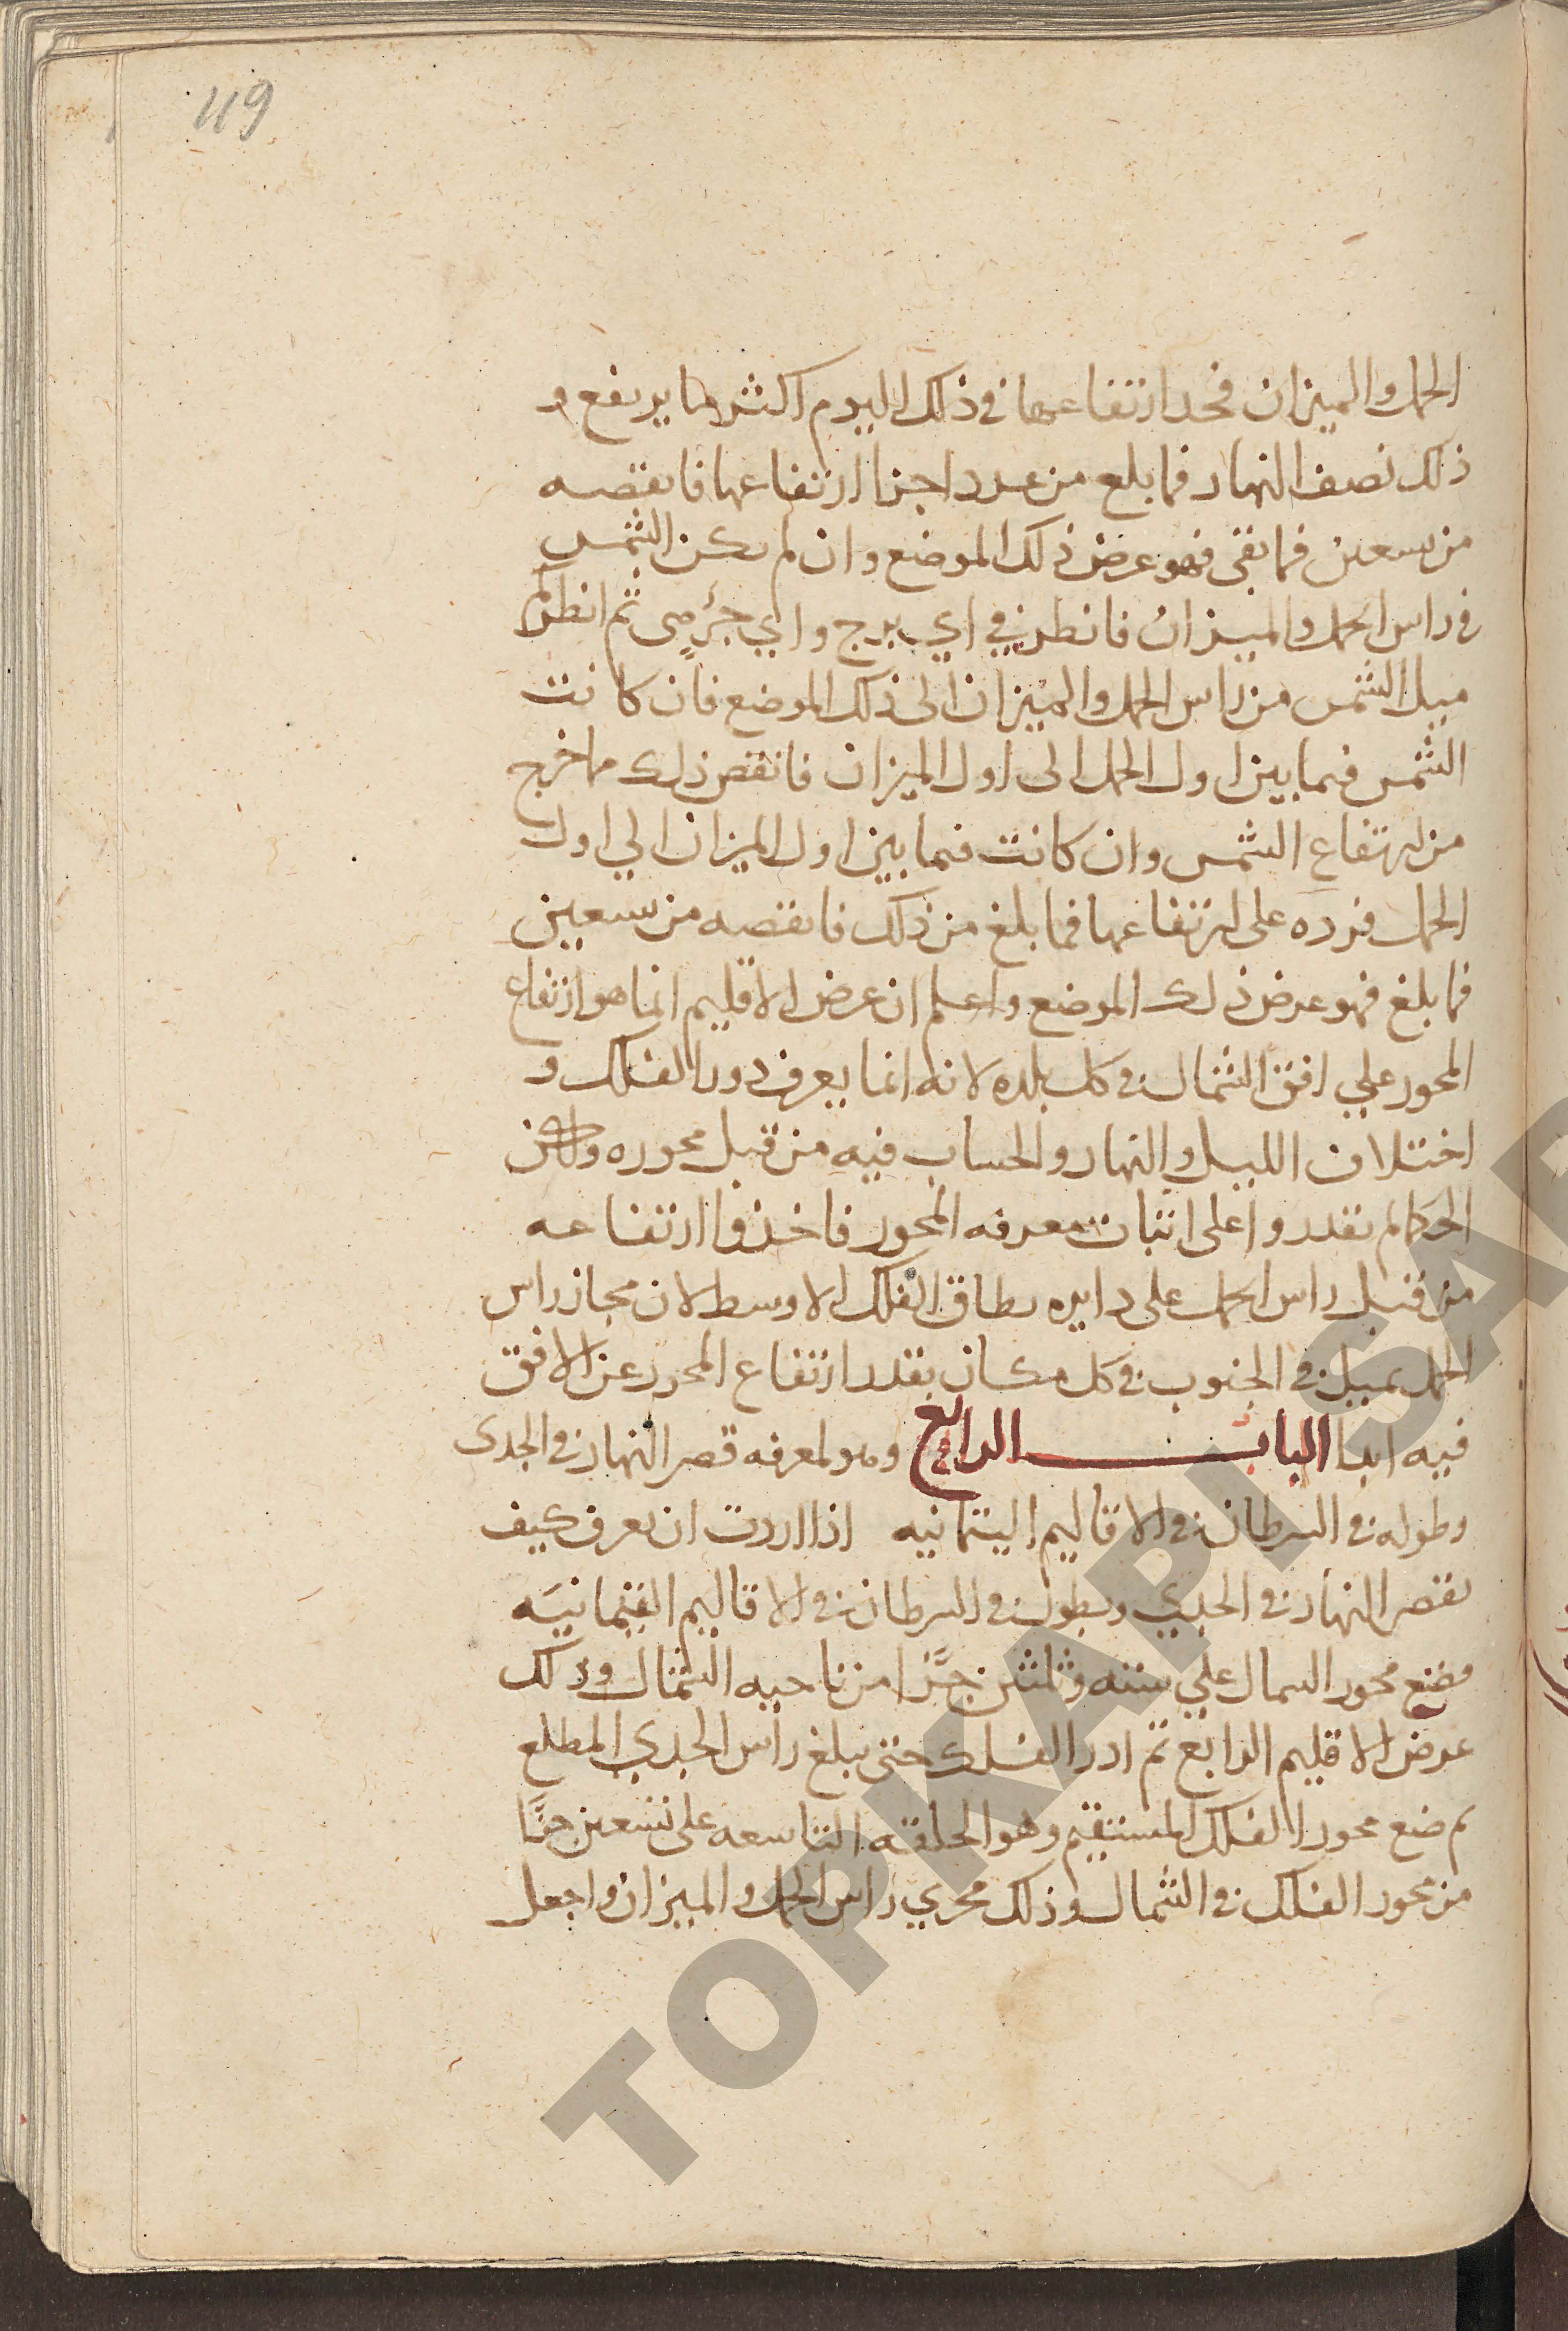 119
الحمل والميزان فخد ارتفاعها في ذلك اليوم اكثر ما يرتفع و
ذلك نصف النهار فما بلغ من عدد اجزا ارتفاعها فانقصه
من تسعين فما بقى فهو عرض ذلك الموضع وان لم تكن الشمس
في راس الحمل والميزان فانظر في اي برج واي جزء هى ثم انظر كم
ميل الشمس من راس الحمل والميزان الى ذلك الموضع فان كانت
الشمس فيما بين اول الحمل الى اول الميزان فانقص ذلك مما خرج
من ارتفاع الشمس وان كانت فيما بين اول الميزان الي اول
الحمل فزده على ارتفاعها فما بلغ من ذلك فانقصه من تسعين
فما بلغ فهو عرض ذلك الموضع واعلم ان عرض الاقليم انما هو ارتفاع
المحور علي افق الشمال في كل بلده لانه انما يعرف دور الفلك و
اختلاف الليل والنهار والحساب فيه من قبل محوره ولكن
الحكما لم يقدروا على اثبات معرفه المحور فاخذوا ارتفاعه
من قبل راس الحمل على دايره نطاق الفلك الاوسط لان مجاز راس
الحمل يميل في الجنوب في كل مكان بقدر ارتفاع المحور عن الافق
فيه ابدا الباب الرابع وهو لمعرفه قصر النهار في الجدى
وطوله في السرطان في الاقاليم الثمانيه اذا اردت ان تعرف كيف
يقصر النهار في الجدي ويطول في السرطان في الاقاليم الثمانيه
فضع محور الشمال علي سته وثلثين جزا من ناحيه الشمال وذلك
عرض الاقليم الرابع ثم ادر الفلك حتى يبلغ راس الجدي المطلع
ثم ضع محور الفلك المستقيم وهو الحلقه التاسعه على تسعين جزا
من محور الفلك في الشمال وذلك مجري راس الحمل والميزان واجعل
TOPKAPI SAR